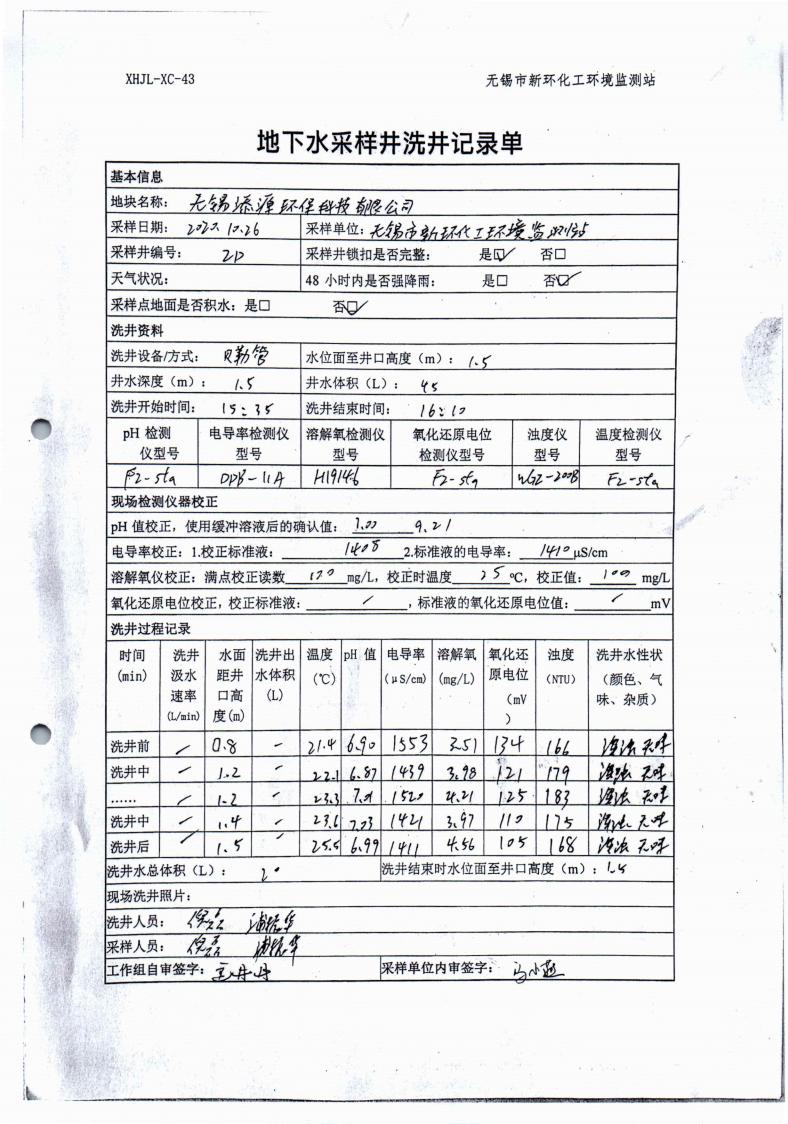 XHJL-XC-43 无锡市新环化工环境监测站
地下水采样井洗井记录单
基本信息
地块名称： 无锡添源环保科技有限公司
采样日期： 2022.10.26 采样单位：无锡市新环化工环境监测站
采样井编号： 2D 采样井锁扣是否完整： 是☑ 否□
天气状况： 48 小时内是否强降雨： 是□ 否☑
采样点地面是否积水：是□ 否☑
洗井资料
洗井设备/方式： 贝勒管 水位面至井口高度（m）： 1.5
井水深度（m）： 1.5 井水体积（L）： 45
洗井开始时间： 15：35 洗井结束时间： 16：10
pH 检测 电导率检测仪 溶解氧检测仪 氧化还原电位 浊度仪 温度检测仪
仪型号 型号 型号 检测仪型号 型号 型号
F2-sta DDB-11A HI9146 F2-sta WGZ-200B F2-sta
现场检测仪器校正
pH 值校正，使用缓冲溶液后的确认值： 7.00 9.21
电导率校正：1.校正标准液： 1408 2.标准液的电导率： 1410 μS/cm
溶解氧仪校正：满点校正读数 100 mg/L，校正时温度 25 ℃，校正值： 100 mg/L
氧化还原电位校正，校正标准液： / ，标准液的氧化还原电位值： / mV
洗井过程记录
时间 洗井 水面 洗井出 温度 pH 值 电导率 溶解氧 氧化还 浊度 洗井水性状
(min) 汲水 距井 水体积 (℃) (μS/cm) (mg/L) 原电位 (NTU) （颜色、气
速率 口高 (L) （mV 味、杂质）
(L/min) 度(m) ）
洗井前 / 0.8 - 21.4 6.90 1553 3.51 134 166 浑浊 无味
洗井中 / 1.2 - 22.1 6.87 1439 3.98 121 179 浑浊 无味
…… / 1.2 - 23.3 7.01 1520 4.21 125 183 浑浊 无味
洗井中 / 1.4 - 23.6 7.03 1421 3.97 110 175 浑浊 无味
洗井后 / 1.5 - 25.5 6.99 1411 4.56 105 168 浑浊 无味
洗井水总体积（L）： 20 洗井结束时水位面至井口高度（m）：1.5
现场洗井照片：
洗井人员： 倪磊
采样人员： 倪磊
工作组自审签字： 采样单位内审签字：